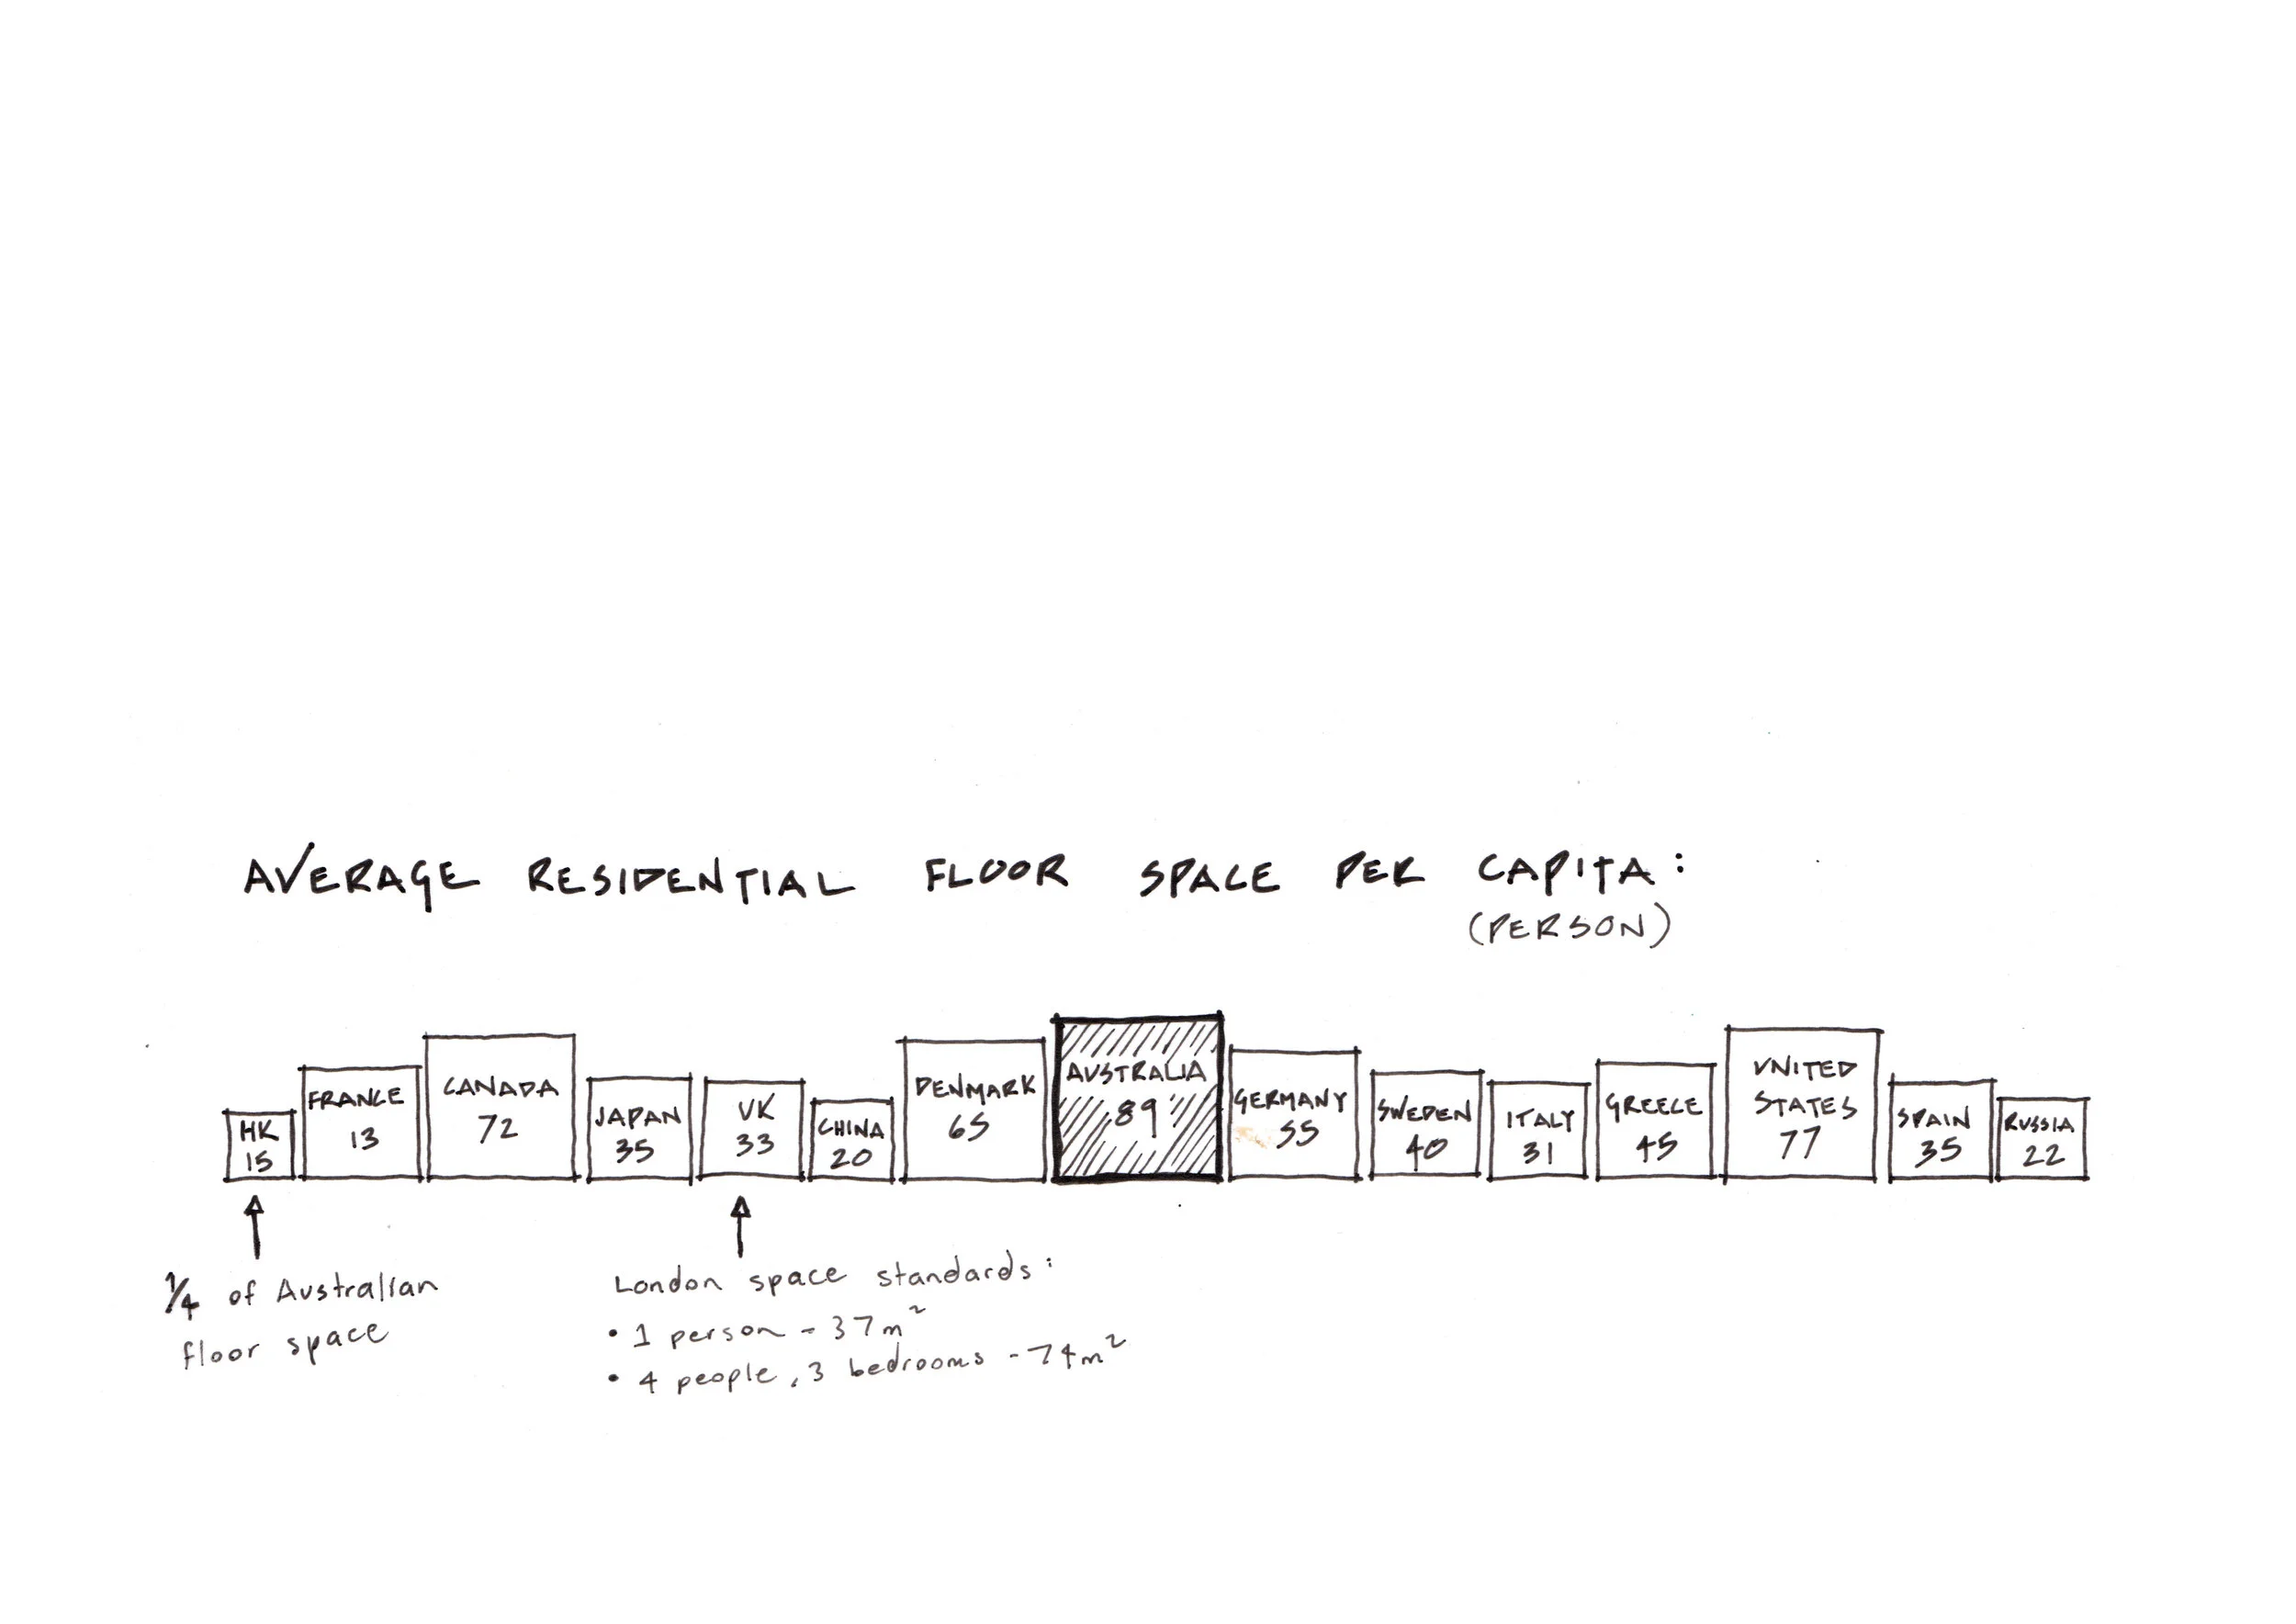 AVERAGE RESIDENTIAL FLOOR SPACE PER CAPITA:
(PERSON)
HK
15
FRANCE
13
CANADA
72
JAPAN
35
UK
33
CHINA
20
DENMARK
65
AUSTRALIA
89
GERMANY
55
SWEDEN
40
ITALY
31
GREECE
45
UNITED
STATES
77
SPAIN
35
RUSSIA
22
1/4 of Australian
floor space
London space standards:
• 1 person - 37m²
• 4 people, 3 bedrooms - 74m²